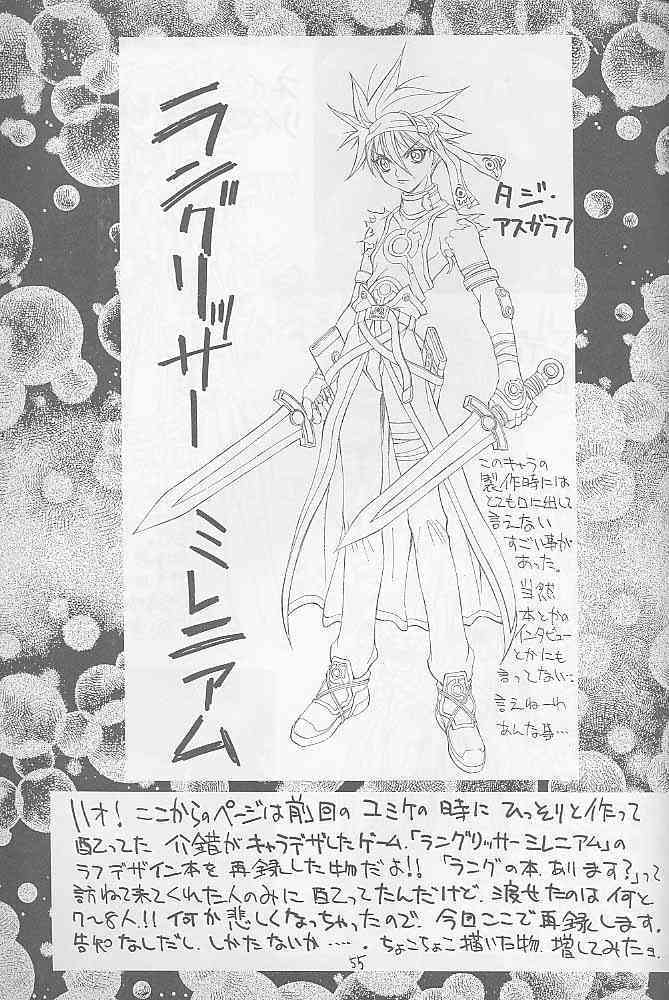 ラングリッサー ミレニアム
タジ・
アスガラフ
このキャラの
製作時には
とても口に出して
言えない
すごい事が
あった。
当然
本とかの
インタビュー
とかにも
言ってない…
言えねーわ
あんな事…
ハオ!ここからのページは前回のユミケの時にひっそりと作って
配ってた 介錯がキャラデザしたゲーム、「ラングリッサーミレニアム」の
ラフデザイン本を再録した物だよ!!「ラングの本、あります?」って
訪ねて来てくれた人のみに配ってたんだけど、渡せたのは何と
7〜8人!!何か悲しくなっちゃったので、今回ここで再録します。
告知なしだし、しかたないか……。ちょこちょこ描いた物、増してみたョ
55